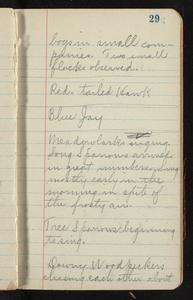 29
boys in small com-
panies. Two small
flocks observed.
Red-tailed Hawk
Blue Jay
Meadowlarks singing.
Song Sparrows arrived
in great numbers, sing
mostly early in the
morning in spite of
the frosty air.
Tree Sparrows beginning
to sing.
Downy Woodpeckers
chasing each other about